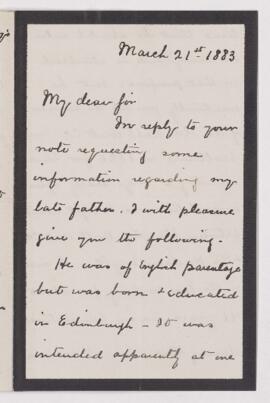 March 21st 1883
My dear Sir
In reply to your
note requesting some
information regarding my
late father. I with pleasure
give you the following.
He was of English parentage
but was born & educated
in Edinburgh - It was
intended apparently at one